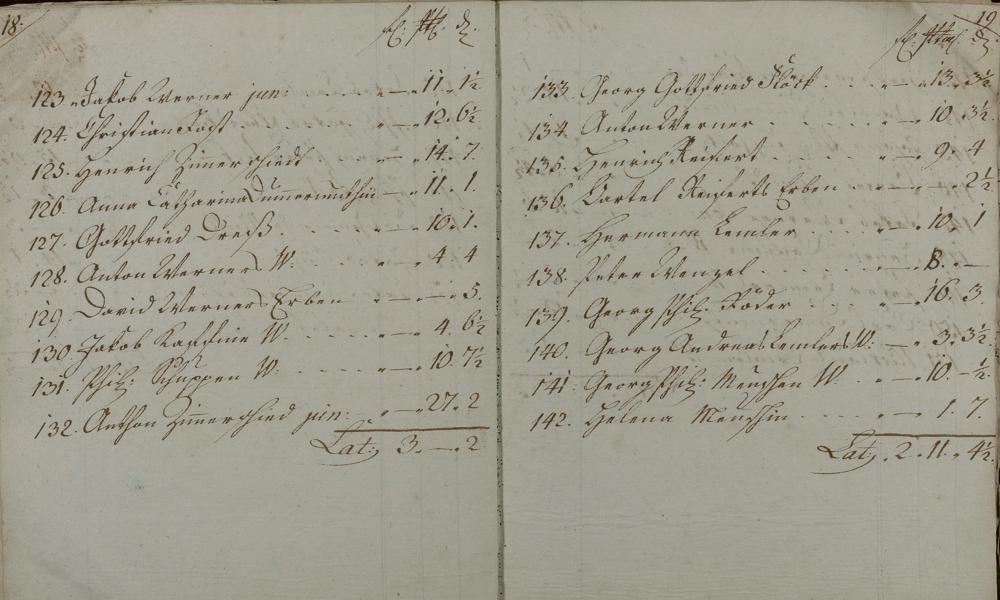 18.
123. Jakob Werner jun: . . . . " — " 11. 1½
124. Christian Jost . . . . " — " 12. 6½
125. Henrich Zimerschiedt " — " 14. 7.
126. Anna Catharina — " 11. 1.
127. Gottfried Dreß . . . . " — " 10. 1.
128. Anton Werners W: . . . . " — " 4. 4
129. David Werners Erben " — " — 5.
130. Jakob W. . . . . " — " 4. 6½
131. Phil: Schuppen W. . . . . " — " 10. 7½
132. Anthon Zimerschied jun: " — " 27. 2
Lat: 3. — . 2
19
133. Georg Gottfried . . . " — " 13. 3½
134. Anton Werner . . . . " — " 10. 3½
135. Henrich Reifert . . . . " — " 9. 4
136. Bartel Reiferts Erben " — " — 2½
137. Hermann Lemler . . . . " — " 10. 1
138. Peter Wenzel . . . . " — " 8. —
139. Georg Phil: Föder . . . " — " 16. 3.
140. Georg Andreas Lemlers W: " — " 3. 3½
141. Georg Phil: Menchen W. . " — " 10. — ½
142. Helena Menchin . . . . " — " 1. 7.
Lat: . 2. 11. 4½